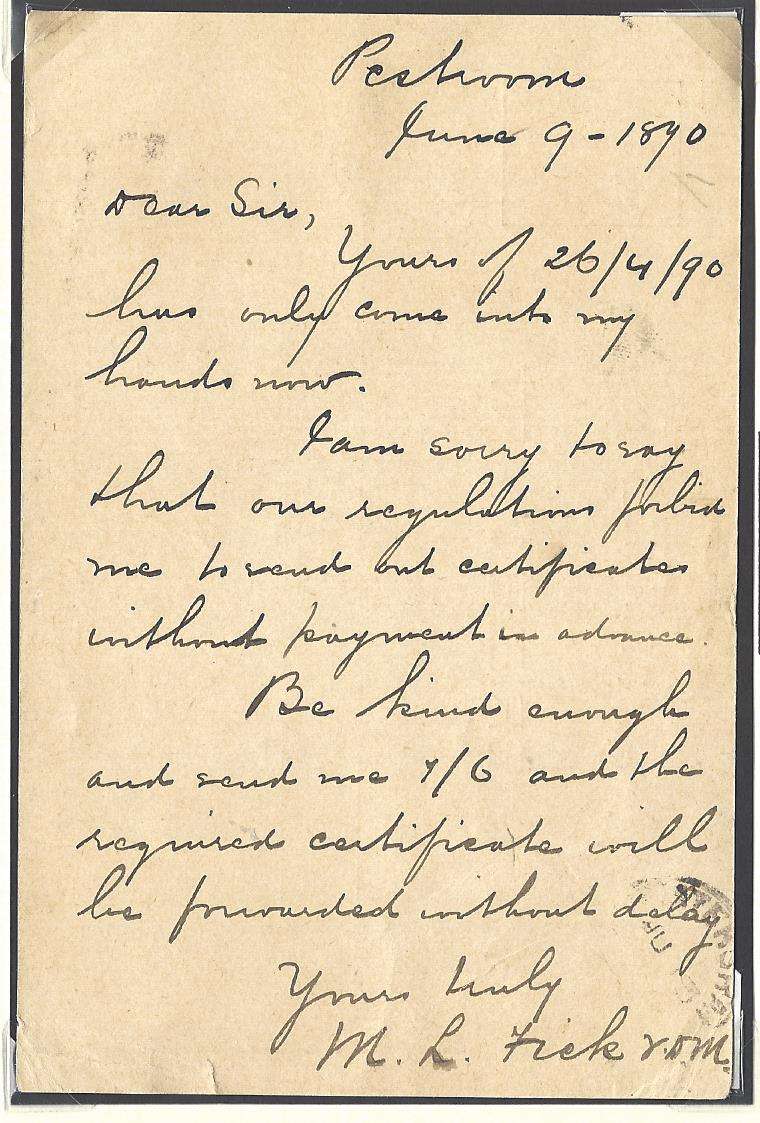 Pestroom
June 9 - 1890
Dear Sir,
Yours of 26/4/90
has only come into my
hands now.
I am sorry to say
that our regulations forbid
me to send out certificates
without payment in advance.
Be kind enough
and send me 7/6 and the
required certificate will
be forwarded without delay
Yours truly
M. L. Fick V.D.M.